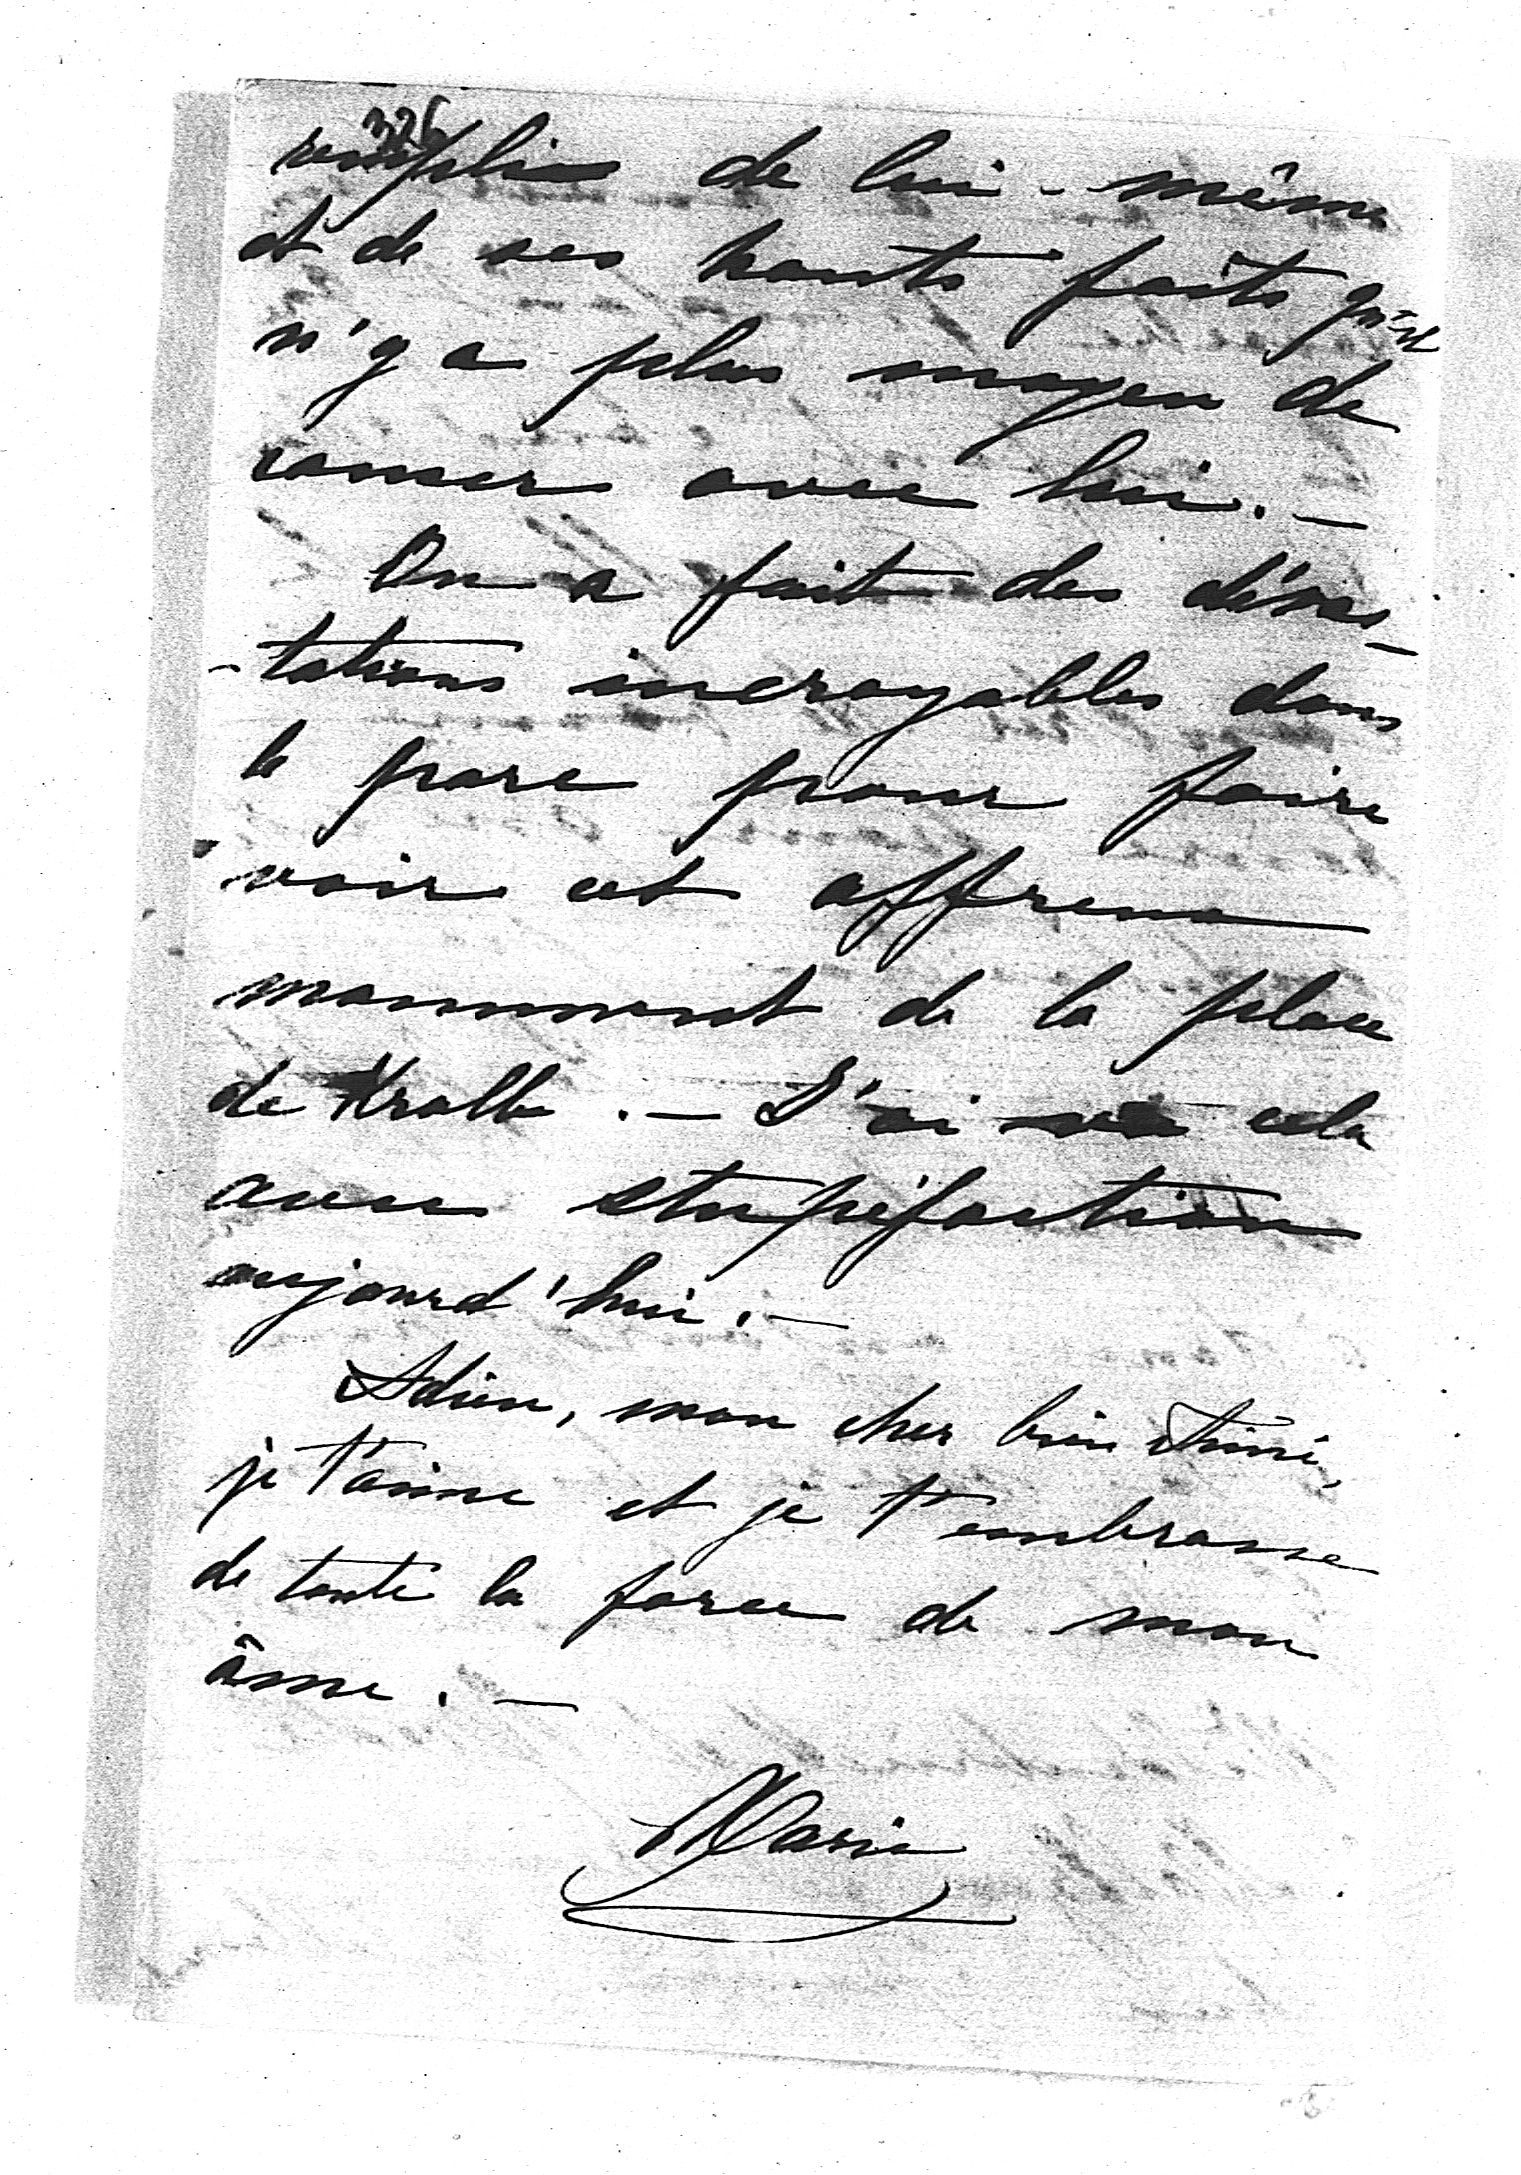 326
rempli de lui-même
et de ses hauts faits qu'il
n'y a plus moyen de
causer avec lui. —
On a fait des dévas-
-tations incroyables dans
le parc pour faire
voir cet affreux
monument de la place
de Trolle. — J'ai vu cela
avec stupéfaction
aujourd'hui. —
Adieu, mon cher bien Aimé,
je t'aime et je t'embrasse
de toute la force de mon
âme. —
Marie